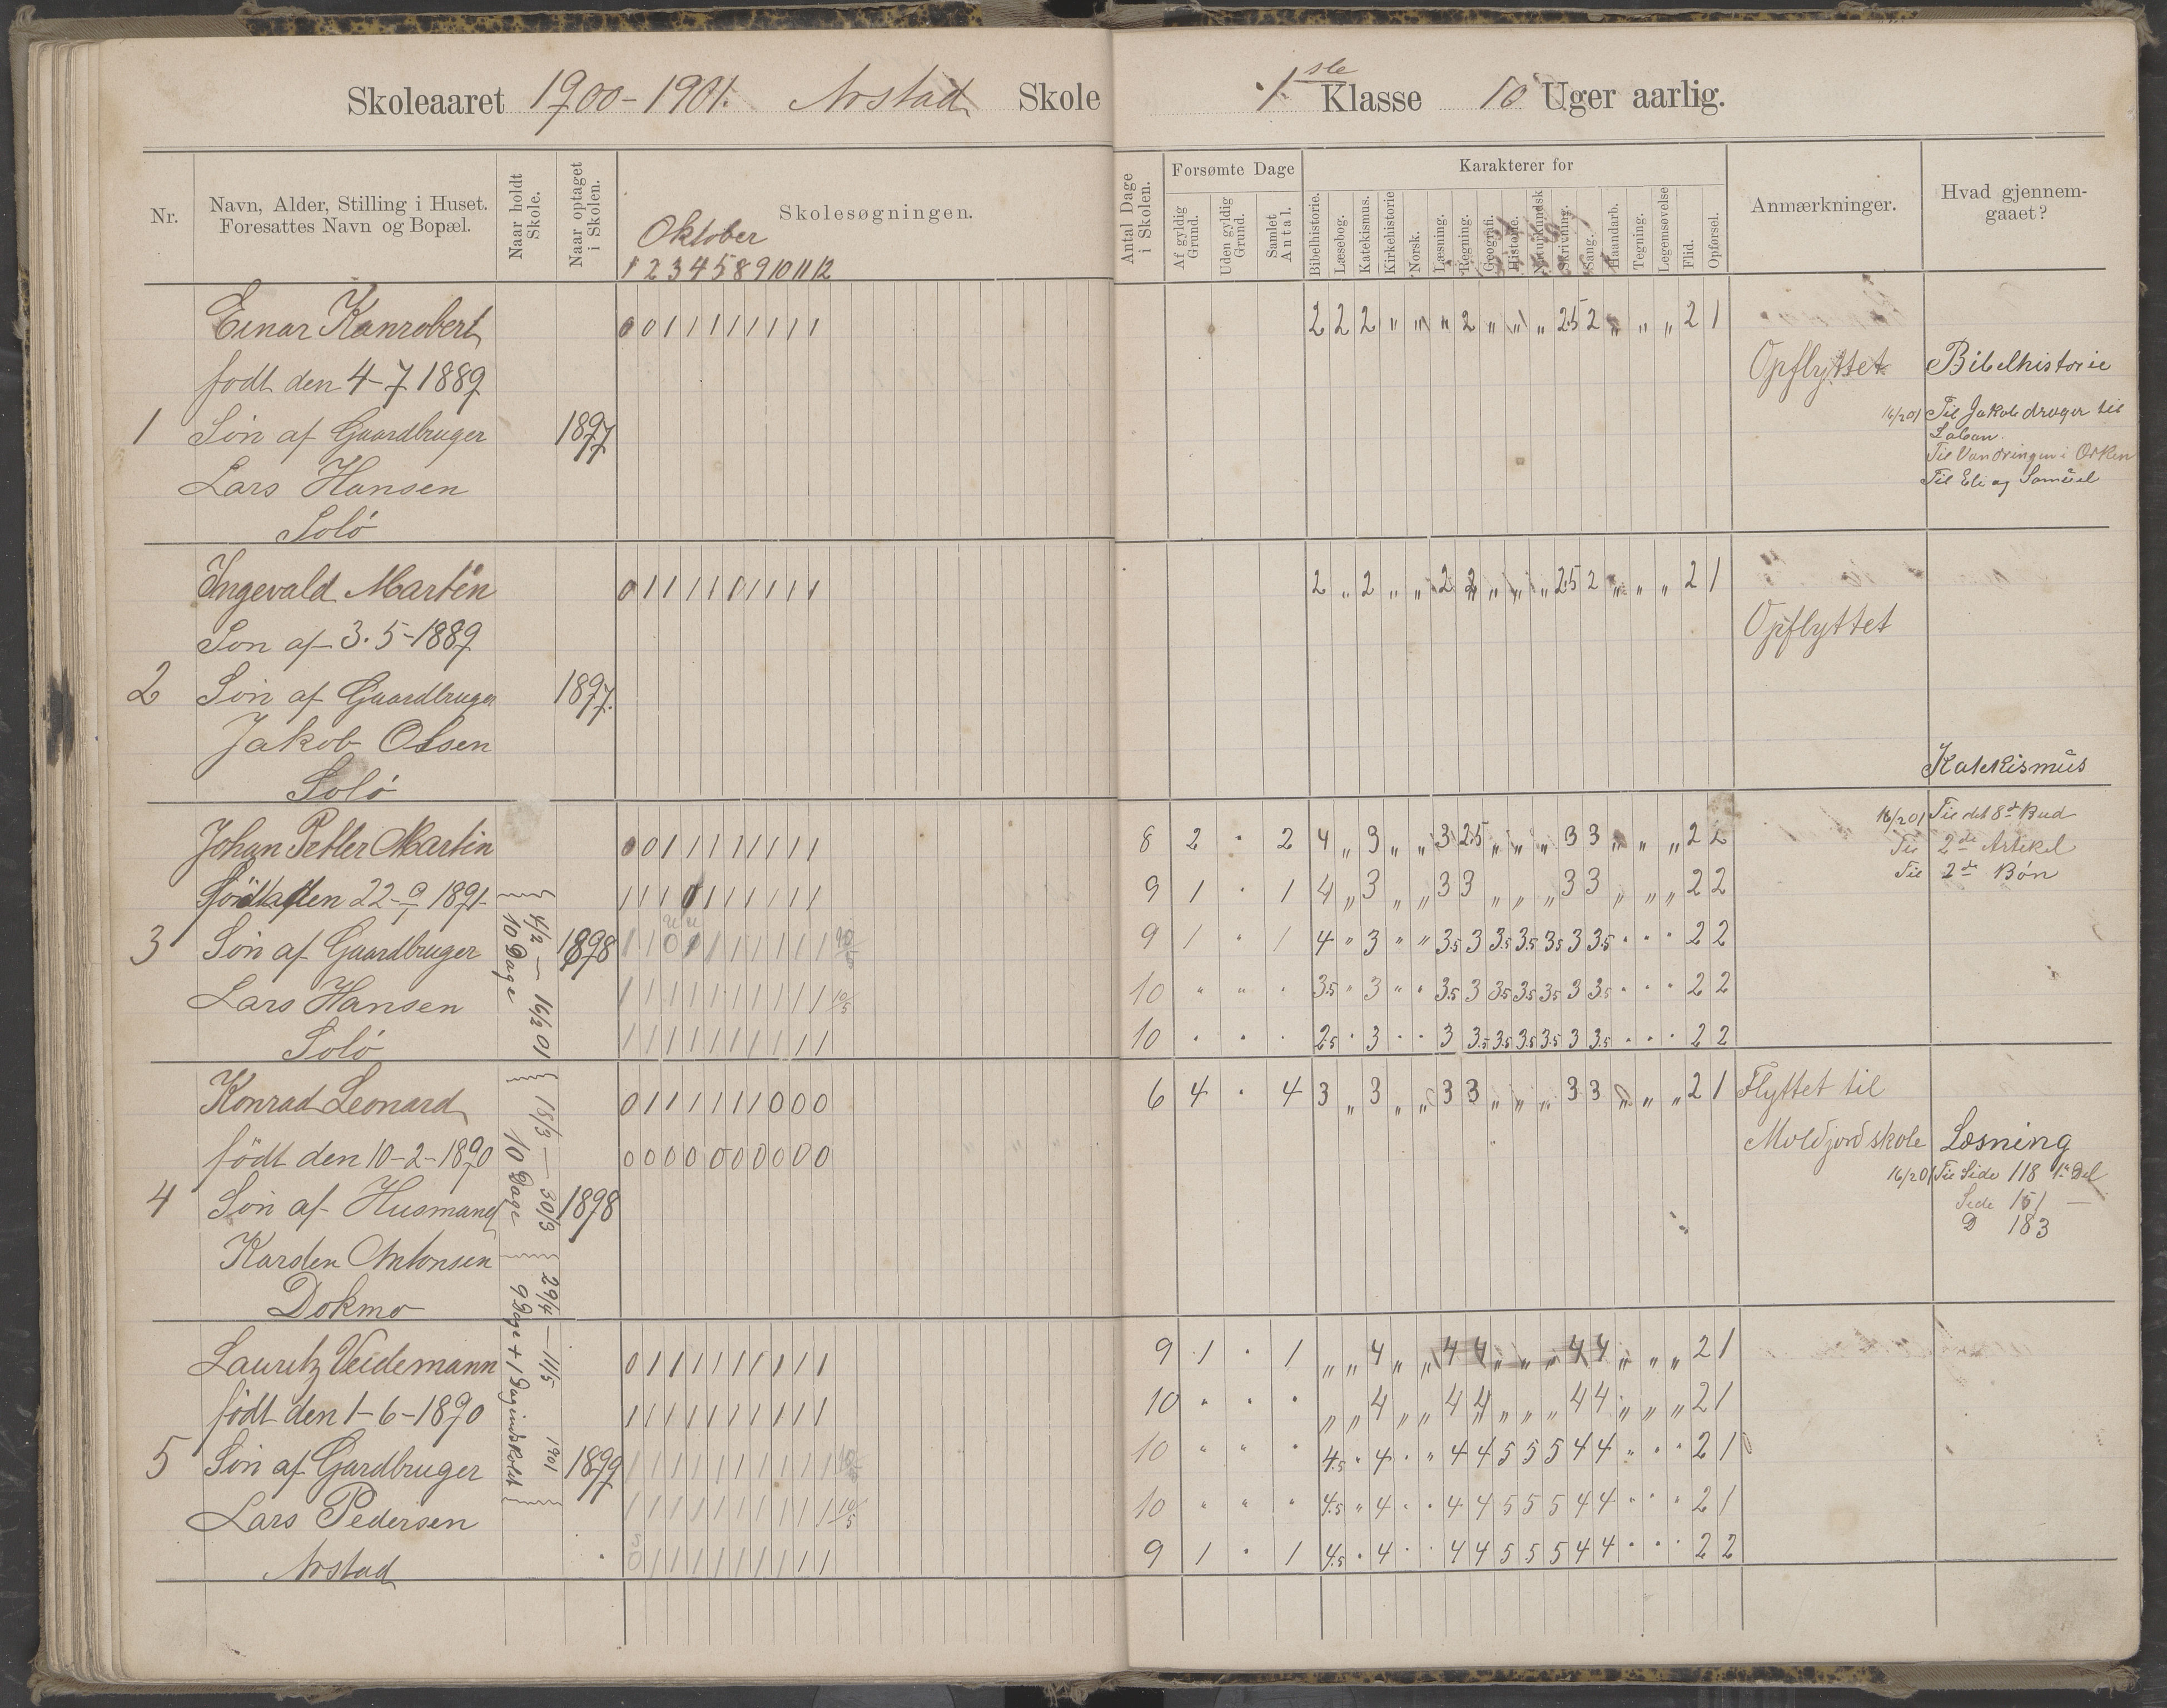 Skoleaaret 1900-1901. Arstad Skole
1ste Klasse 10 Uger aarlig.
Nr.
Navn, Alder, Stilling i Huset.
Foresattes Navn og Bopæl.
Naar holdt
Skole.
Naar optaget
i Skolen.
Skolesøgningen.
Oktober
1 2 3 4 5 8 9 10 11 12
Antal Dage
i Skolen.
Forsømte Dage
Af gyldig
Grund.
Uden gyldig
Grund.
Samlet
Antal.
Karakterer for
Bibelhistorie.
Læsebog.
Katekismus.
Kirkehistorie
Norsk.
Læsning.
Regning.
Geografi.
Historie.
Naturkundsk
Skrivning.
Sang.
Haandarb.
Tegning.
Legemsøvelse
Flid.
Opførsel.
Anmærkninger.
Hvad gjennem-
gaaet?
1
Einar Kanrobert
født den 4-7 1889
Søn af Gaardbruger
Lars Hansen
Solö
1897
0 0 1 1 1 1 1 1 1 1
2 2 2 " " " 2 " " " 2.5 2 " " " 2 1
Opflyttet
Bibelhistorie
16/2 01 Til Jakob drager til
Laban.
Til Vandringen i Ørken
Til Eli og Samuel
2
Ingevald Martin
Søn af 3.5-1889
Søn af Gaardbruger
Jakob Olsen
Solö
1897.
0 1 1 1 1 1 1 1 1 1
2 " 2 " " 2 2 " " " 2.5 2 " " " 2 1
Opflyttet
Katekismus
3
Johan Petter Martin
født den 22-9 1891
Søn af Gaardbruger
Lars Hansen
Solö
4/2 - 16/2 01
10 Dage
1898
0 0 1 1 1 1 1 1 1 1
8 2 " 2 4 " 3 " " 3 2.5 " " " 3 3 " " " 2 2
9 1 " 1 4 " 3 " " 3 3 " " " 3 3 " " " 2 2
9 1 " 1 4 " 3 " " 3.5 3 3.5 3.5 3.5 3 3.5 " " " 2 2
10 " " " 3.5 " 3 " " 3.5 3 3.5 3.5 3.5 3 3.5 " " " 2 2
10 " " " 2.5 " 3 " " 3 3.5 3.5 3.5 3.5 3 3.5 " " " 2 2
16/2 01 Til det 8de Bud
Til 2den Artikel
Til 2den Bøn
4
Konrad Leonard
födt den 10-2-1890
Søn af Husmand
Karsten Antonsen
Dokmo
18/3 - 30/3
10 Dage
1898
0 1 1 1 1 1 1 0 0 0
0 0 0 0 0 0 0 0 0 0
6 4 " 4 3 " 3 " " 3 3 " " " 3 3 " " " 2 1
Flyttet til
Moldjord skole
Læsning
16/2 01 Til Side 118 1ste Del
Side 151 —
D 183
5
Lauritz Veidemann
födt den 1-6-1890
Søn af Gardbruger
Lars Pedersen
Arstad
29/4 - 11/5 1901
9 Dage + 1 Dag indskoldt
1899
0 1 1 1 1 1 1 1 1 1
1 1 1 1 1 1 1 1 1 1
9 1 " 1 " " 4 " " 4 4 " " " 4 4 " " " 2 1
10 " " " " " 4 " " 4 4 " " " 4 4 " " " 2 1
10 " " " 4.5 " 4 " " 4 4 5 5 5 4 4 " " " 2 1
10 " " " 4.5 " 4 " " 4 4 5 5 5 4 4 " " " 2 1
9 1 " 1 4.5 " 4 " " 4 4 5 5 5 4 4 " " " 2 2